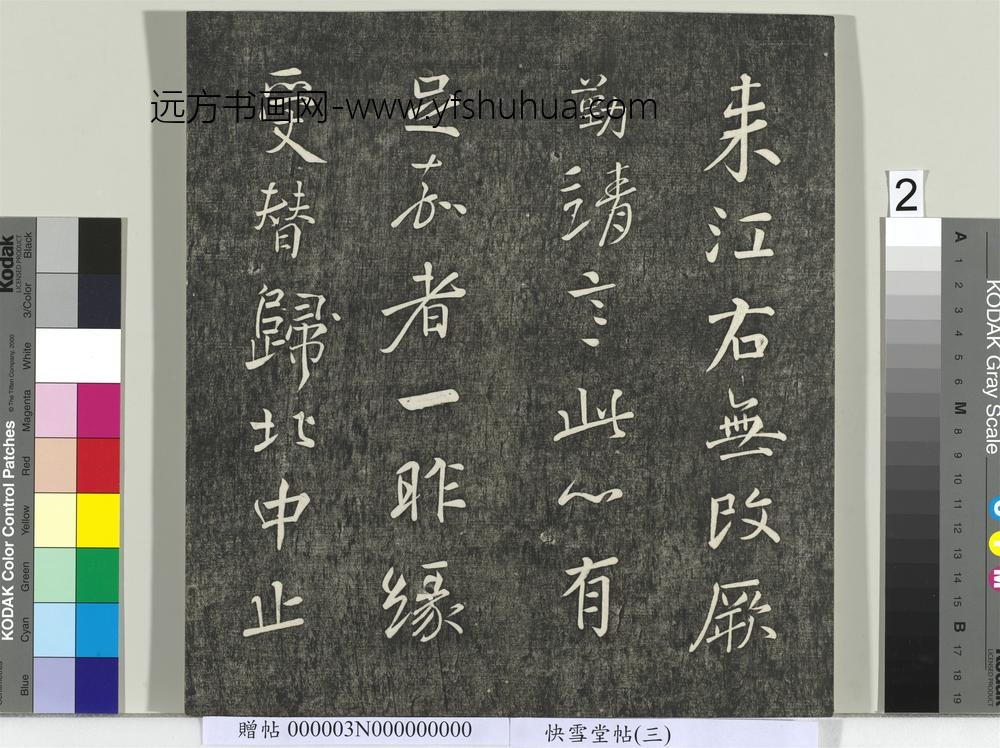 来江右無改厥
勤靖言此心有
足嘉者一昨緣
受替歸北中止
远方书画网-www.yfshuhua.com
2
贈帖 000003N000000000
快雪堂帖(三)
Kodak
LICENSED PRODUCT
KODAK Color Control Patches
© The Tiffen Company, 2000
Blue
Cyan
Green
Yellow
Red
Magenta
White
3/Color
Black
A
1
2
3
4
5
6
M
8
9
10
11
12
13
14
15
B
17
18
19
KODAK Gray Scale
C
Y
M
Kodak
LICENSED PRODUCT